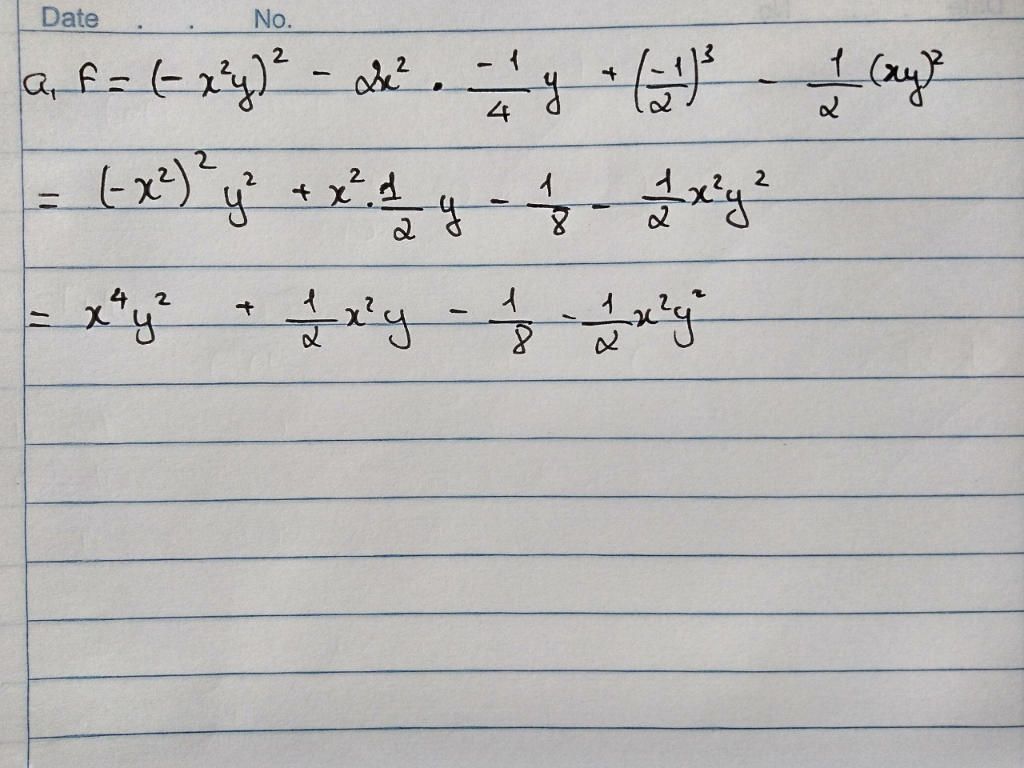 Date . . No.
a, F = (- x²y)² - 2x² . \frac{-1}{4} y + (\frac{-1}{2})³ - \frac{1}{2} (xy)²
= (-x²)² y² + x² . \frac{1}{2} y - \frac{1}{8} - \frac{1}{2} x²y²
= x⁴y² + \frac{1}{2} x²y - \frac{1}{8} - \frac{1}{2} x²y²